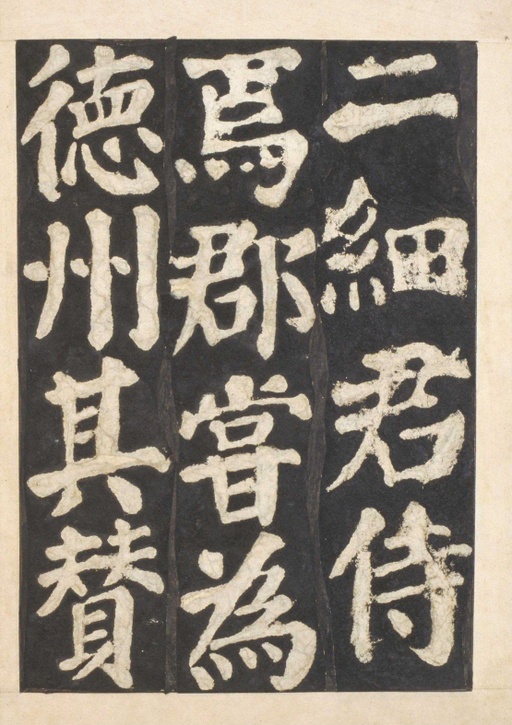 二細君侍
焉郡嘗為
德州其賛